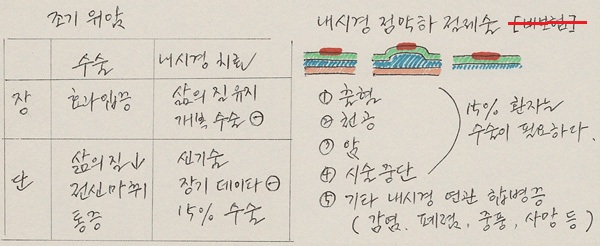 조기 위암
수술
내시경 치료
장
효과입증
삶의 질 유지
개복 수술 ⊖
단
삶의 질↓
전신마취
통증
신기술
장기 데이타 ⊖
15% 수술
내시경 점막하 절제술 [비보험]
① 출혈
② 천공
③ 암
④ 시술 중단
15% 환자는
수술이 필요하다.
⑤ 기타 내시경 연관 합병증
(감염, 폐렴, 중풍, 사망 등)